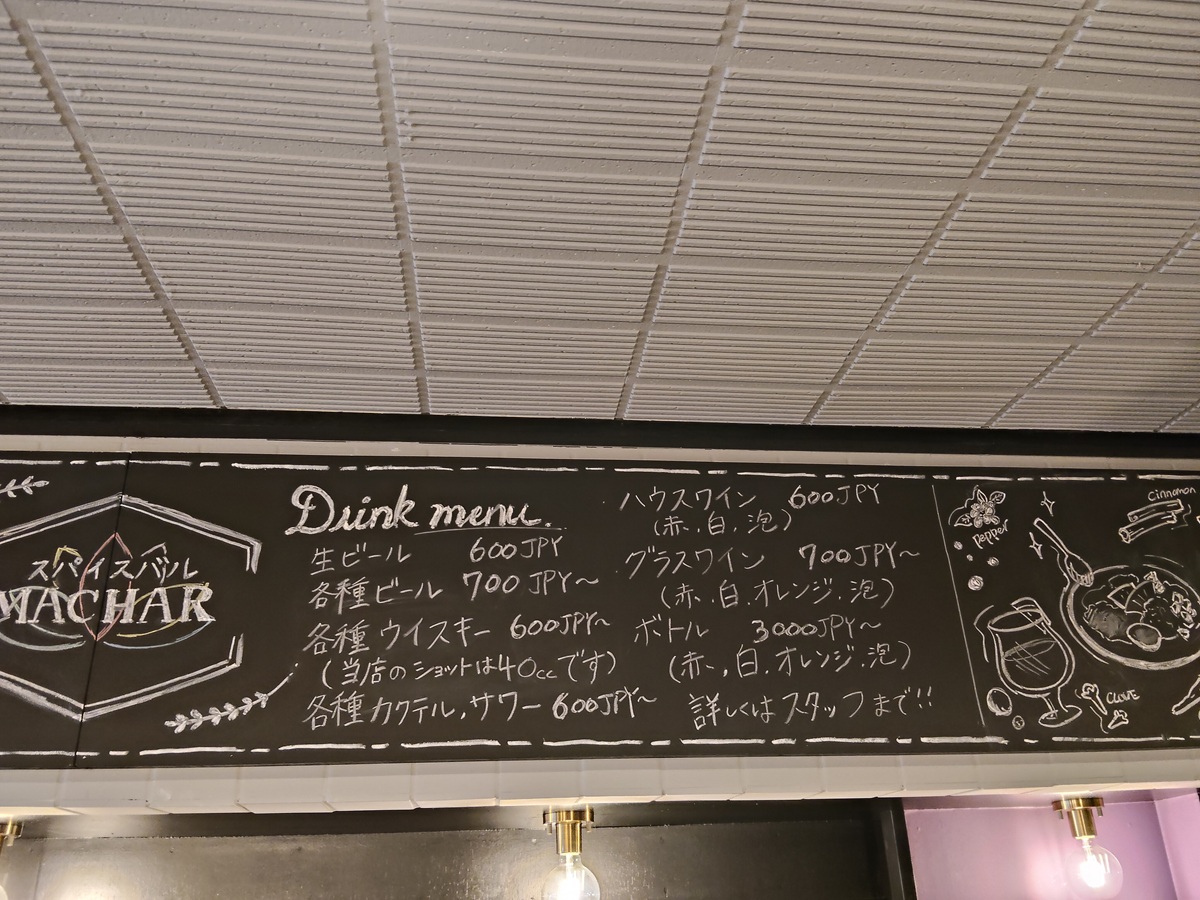 スパイスバル
MACHAR
Drink menu.
生ビール 600JPY
各種ビール 700JPY~
各種ウイスキー 600JPY~
(当店のショットは40ccです)
各種カクテル,サワー 600JPY~
ハウスワイン 600JPY
(赤,白,泡)
グラスワイン 700JPY~
(赤,白,オレンジ,泡)
ボトル 3000JPY~
(赤,白,オレンジ,泡)
詳しくはスタッフまで!!
pepper
Cinnamon
CLOVE